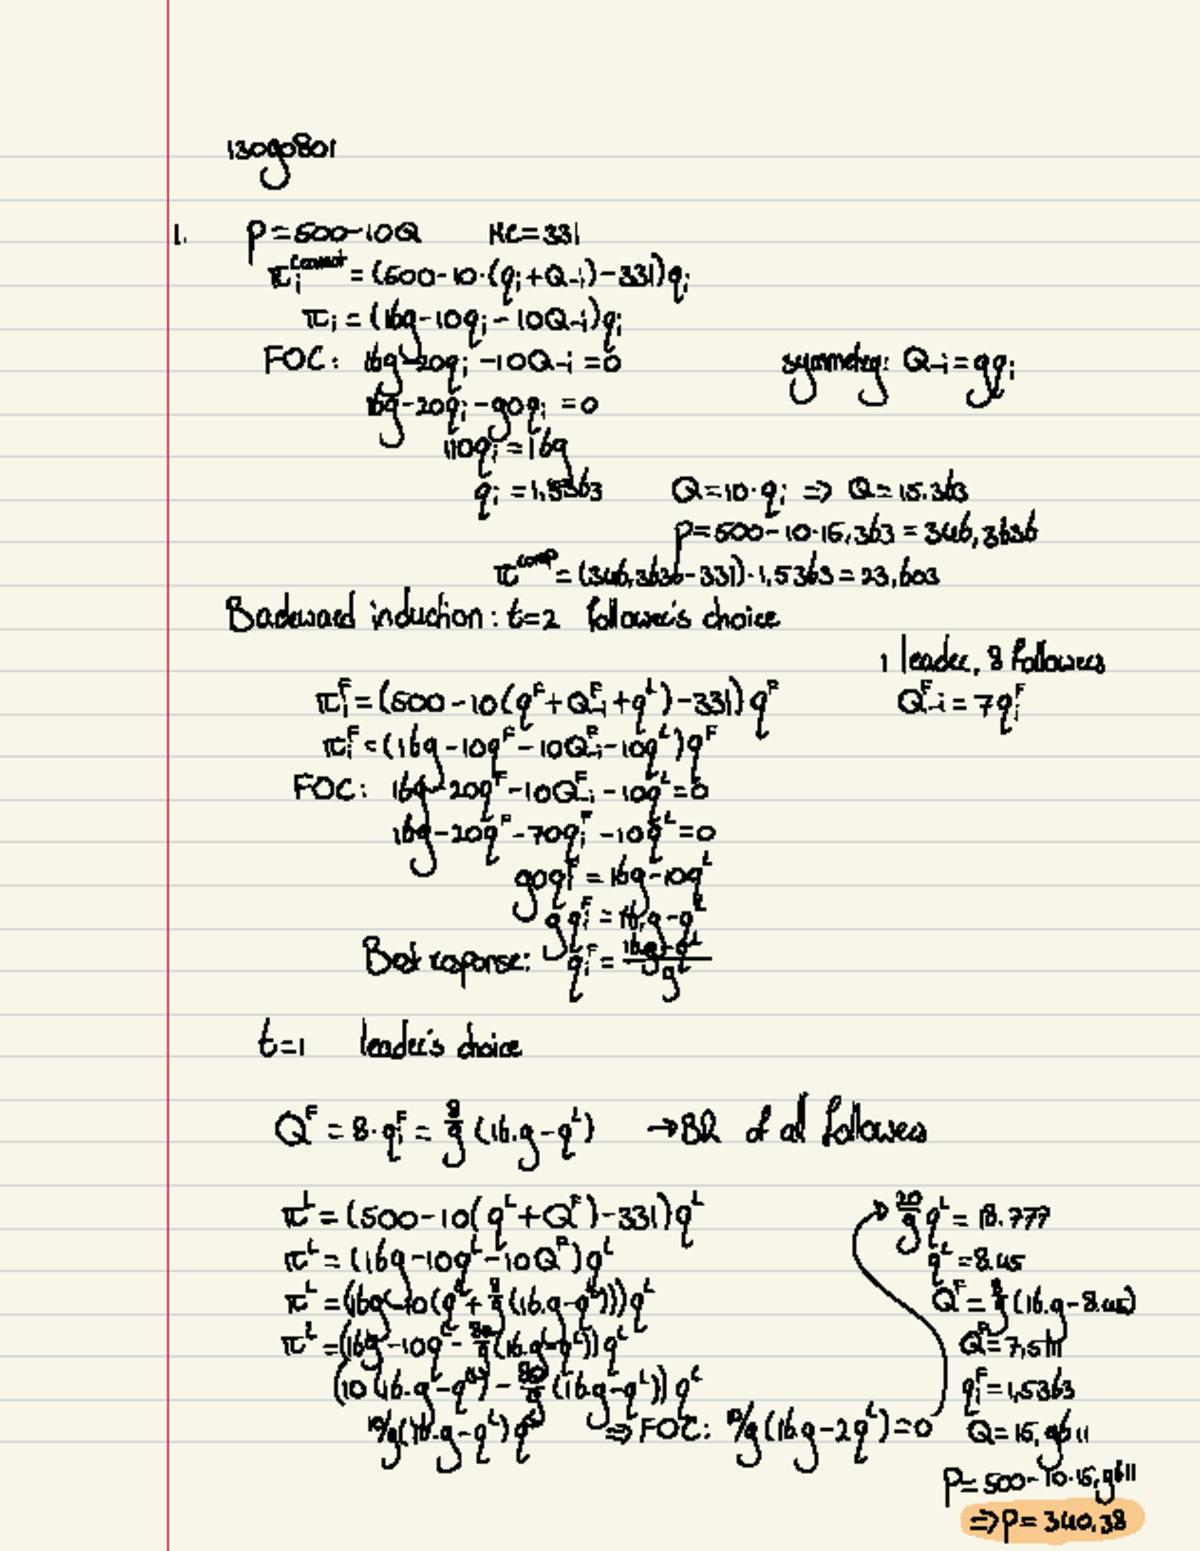 13090801
1. P = 500-10Q MC = 331
π_i^cournot = (500-10·(q_i+Q_-i)-331)q_i
π_i = (169-10q_i-10Q_-i)q_i
FOC: 169-20q_i-10Q_-i = 0 symmetry: Q_-i = 9q_i
169-20q_i-90q_i = 0
110q_i = 169
q_i = 1,5363 Q = 10·q_i ⇒ Q = 15.363
P = 500-10·15,363 = 346,3636
π^comp = (346,3636-331)·1,5363 = 23,603
Backward induction: t=2 follower's choice
1 leader, 8 followers
π_i^F = (500-10(q^F+Q_-i^F+q^L)-331)q^F Q_-i^F = 7q_i^F
π_i^F = (169-10q^F-10Q_-i^F-10q^L)q^F
FOC: 169-20q^F-10Q_-i^F-10q^L = 0
169-20q^F-70q_i^F-10q^L = 0
90q_i^F = 169-10q^L
9q_i^F = 16,9-q^L
Best reponse: q_i^F = (16,9-q^L)/9
t=1 leader's choice
Q^F = 8·q_i^F = 8/9 (16.9-q^L) → BR of all followers
π^L = (500-10(q^L+Q^F)-331)q^L
π^L = (169-10q^L-10Q^F)q^L
π^L = (169-10(q^L+8/9(16.9-q^L)))q^L
π^L = (169-10q^L-80/9(16.9-q^L))q^L
(10(16.9-q^L)-80/9(16.9-q^L))q^L
10/9(16.9-q^L)q^L ⇒ FOC: 10/9(16.9-2q^L) = 0
→ 20/9 q^L = 18.777
q^L = 8.45
Q^F = 8/9(16.9-8.45)
Q^F = 7,511
q_i^F = 1,5363
Q = 15,9611
P = 500-10·15,9611
⇒ P = 340,38